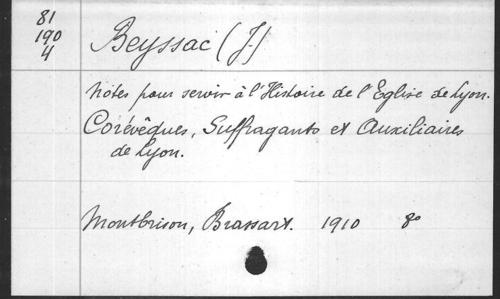 81
190
4
Beyssac (J.)
Notes pour servir à l'Histoire de l'Eglise de Lyon.
Corévêques, Suffragants et Auxiliaires
de Lyon.
Montbrison, Brassart. 1910 8°